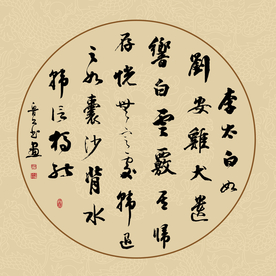 李太白如
劉安雞犬遺
響白雲覈其歸
存恍無定處韓退
之如囊沙背水
韓信獨能